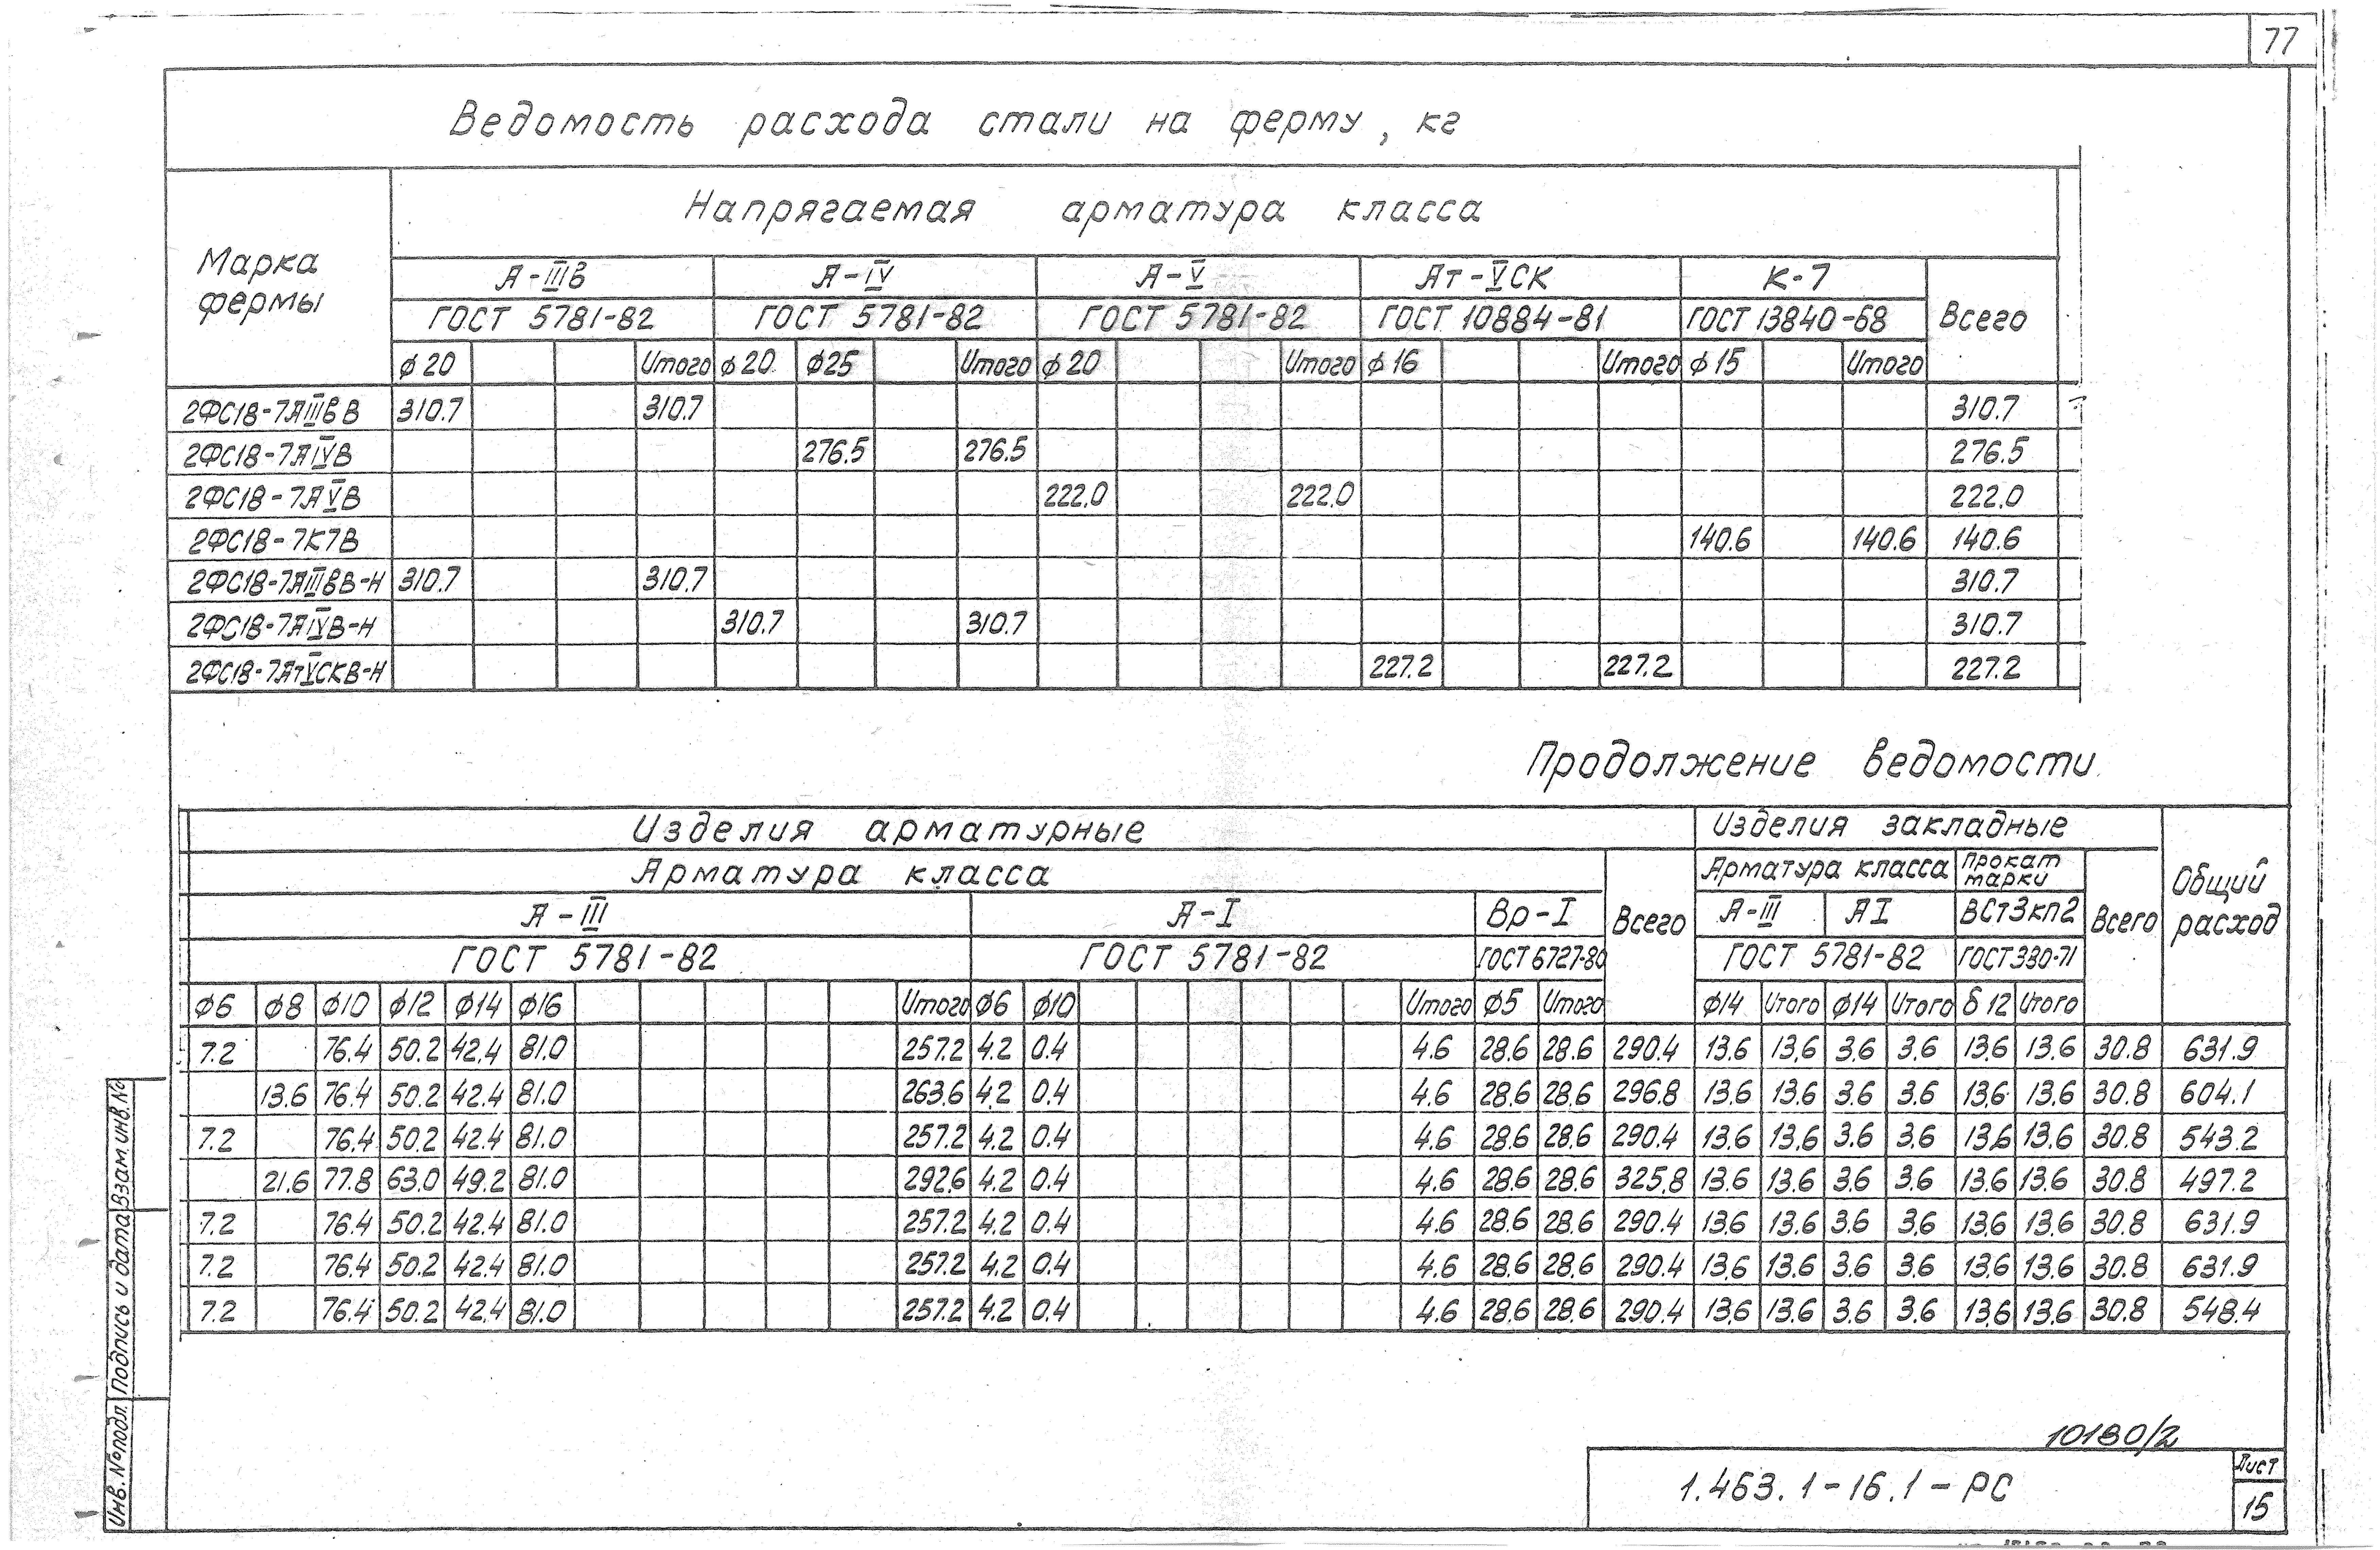 77
Ведомость расхода стали на ферму, кг
Марка фермы
Напрягаемая арматура класса
А-IIIв А-IV А-V Ат-VСК К-7 Всего
ГОСТ 5781-82 ГОСТ 5781-82 ГОСТ 5781-82 ГОСТ 10884-81 ГОСТ 13840-68
ф20 Итого ф20 ф25 Итого ф20 Итого ф16 Итого ф15 Итого
2ФС18-7АIIIвВ 310.7 310.7 310.7
2ФС18-7АIVВ 276.5 276.5 276.5
2ФС18-7АVВ 222.0 222.0 222.0
2ФС18-7К7В 140.6 140.6 140.6
2ФС18-7АIIIвВ-Н 310.7 310.7 310.7
2ФС18-7АIVВ-Н 310.7 310.7 310.7
2ФС18-7АтVСКВ-Н 227.2 227.2 227.2
Продолжение ведомости
Изделия арматурные Изделия закладные Общий расход
Арматура класса Всего Арматура класса Прокат марки Всего
А-III А-I Вр-I А-III АI ВСт3кп2
ГОСТ 5781-82 ГОСТ 5781-82 ГОСТ 6727-80 ГОСТ 5781-82 ГОСТ 380-71
ф6 ф8 ф10 ф12 ф14 ф16 Итого ф6 ф10 Итого ф5 Итого ф14 Итого ф14 Итого δ12 Итого
7.2 76.4 50.2 42.4 81.0 257.2 4.2 0.4 4.6 28.6 28.6 290.4 13.6 13.6 3.6 3.6 13.6 13.6 30.8 631.9
13.6 76.4 50.2 42.4 81.0 263.6 4.2 0.4 4.6 28.6 28.6 296.8 13.6 13.6 3.6 3.6 13.6 13.6 30.8 604.1
7.2 76.4 50.2 42.4 81.0 257.2 4.2 0.4 4.6 28.6 28.6 290.4 13.6 13.6 3.6 3.6 13.6 13.6 30.8 543.2
21.6 77.8 63.0 49.2 81.0 292.6 4.2 0.4 4.6 28.6 28.6 325.8 13.6 13.6 3.6 3.6 13.6 13.6 30.8 497.2
7.2 76.4 50.2 42.4 81.0 257.2 4.2 0.4 4.6 28.6 28.6 290.4 13.6 13.6 3.6 3.6 13.6 13.6 30.8 631.9
7.2 76.4 50.2 42.4 81.0 257.2 4.2 0.4 4.6 28.6 28.6 290.4 13.6 13.6 3.6 3.6 13.6 13.6 30.8 631.9
7.2 76.4 50.2 42.4 81.0 257.2 4.2 0.4 4.6 28.6 28.6 290.4 13.6 13.6 3.6 3.6 13.6 13.6 30.8 548.4
Инв. № подл. Подпись и дата Взам. инв. №
10180/2
1.463.1-16.1-РС
Лист
15